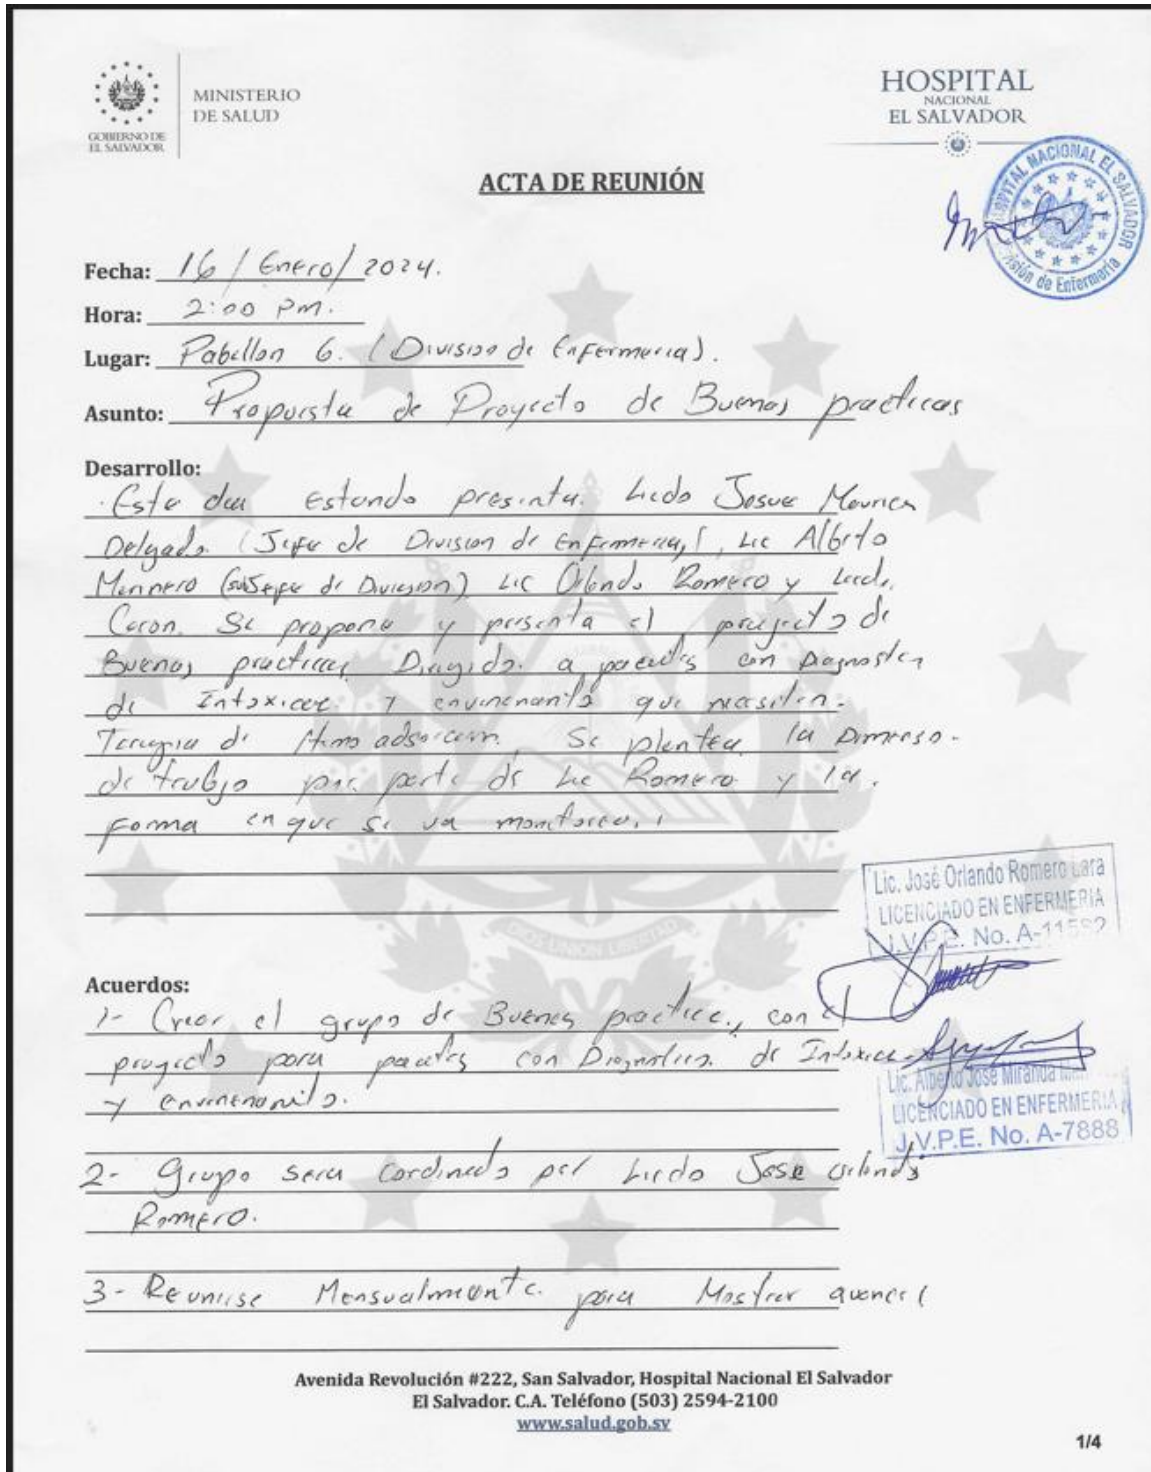 GOBIERNO DE
EL SALVADOR
MINISTERIO
DE SALUD
HOSPITAL
NACIONAL
EL SALVADOR
HOSPITAL NACIONAL EL SALVADOR
División de Enfermería
ACTA DE REUNIÓN
Fecha: 16 / Enero / 2024.
Hora: 2:00 Pm.
Lugar: Pabellon 6. (Division de Enfermeria).
Asunto: Propuesta de Proyecto de Buenas practicas
Desarrollo:
Este dia estando presente. Licdo Josue
Delgado (Jefe de Division de Enfermeria), Lic Alberto
(subJefe de Division) Lic Orlando Romero y
Se propone y presenta el proyecto de
Buenas practicas Dirigido. a con
de y que necesiten.
Terapia de Se plantea la
de trabajo por parte de Lic Romero y la.
Forma en que se va
DIOS UNION LIBERTAD
Lic. José Orlando Romero Lara
LICENCIADO EN ENFERMERIA
J.V.P.E. No. A-11592
Acuerdos:
1- Crear el grupo de Buenas practica, con el
proyecto para con de
y
Lic. Alberto José Miranda
LICENCIADO EN ENFERMERIA
J.V.P.E. No. A-7888
2- Grupo sera por Licdo Jose Orlando
Romero.
3- Reunirse Mensualmente. para Mostrar
Avenida Revolución #222, San Salvador, Hospital Nacional El Salvador
El Salvador. C.A. Teléfono (503) 2594-2100
www.salud.gob.sv
1/4